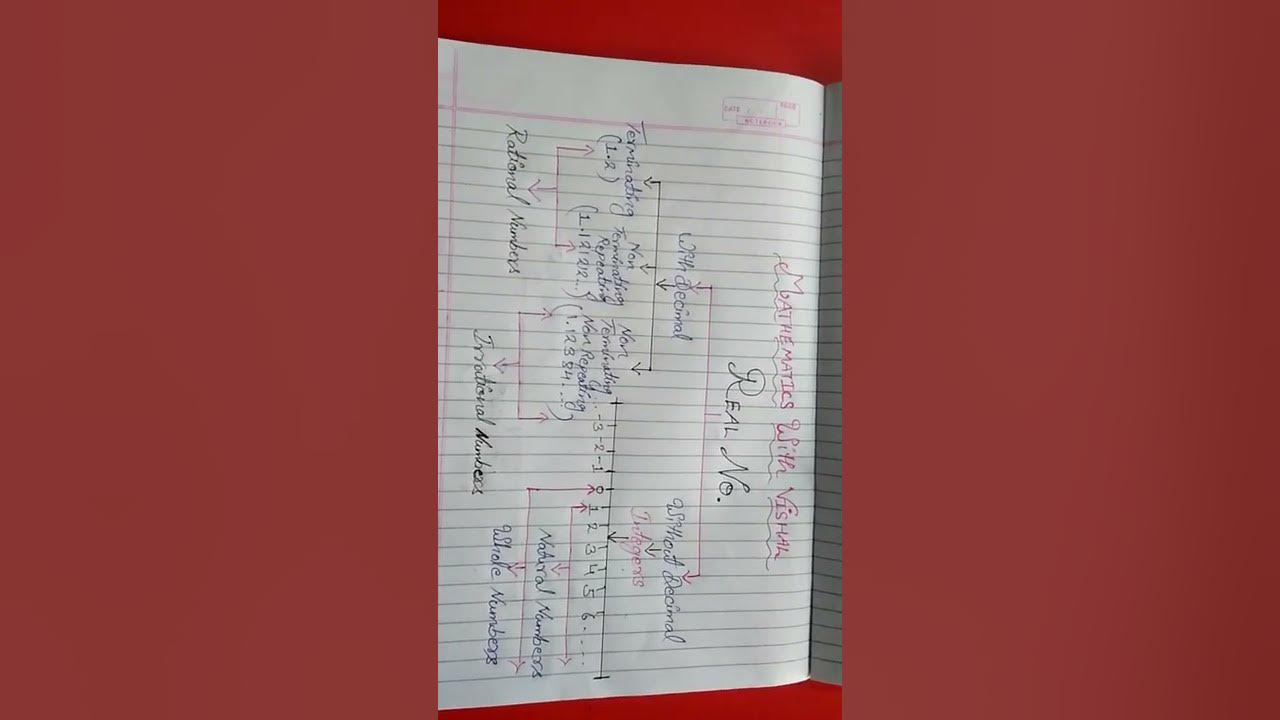 DATE
MATHEMATICS With VISHAL
REAL NO.
With Decimal
Without Decimal
Integers
Terminating
(1.2)
Non
Terminating
Repeating
(1.121212...)
Non
Terminating
Non Repeating
(1.12384...)
... -3 -2 -1 0 1 2 3 4 5 6.....
Rational Numbers
Irrational Numbers
Natural Numbers
Whole Numbers